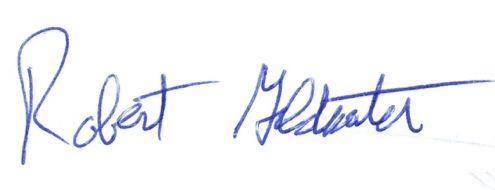 Robert Goldwater